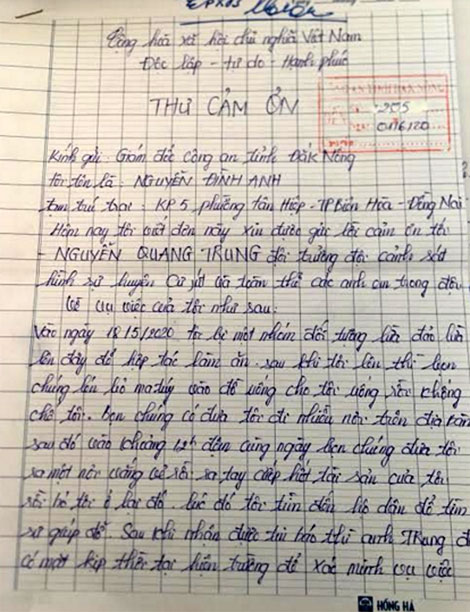 Cộng hoà xã hội chủ nghĩa Việt Nam
Độc lập - tự do - Hạnh phúc
THƯ CẢM ƠN
CÔNG AN TỈNH ĐĂK NÔNG
255
01/6/20
Kính gửi: Giám đốc công an tỉnh Đăk Nông
Tôi tên là: NGUYỄN ĐÌNH ANH
tạm trú tại: KP 5 phường tân Hiệp - TP Biên Hòa - Đồng Nai
Hôm nay tôi viết đơn này xin được gửi lời cảm ơn tới
- NGUYỄN QUANG TRUNG đội trưởng đội cảnh sát
hình sự huyện Cư jút và toàn thể các anh em trong đội
về vụ việc của tôi như sau:
Vào ngày 18/5/2020 tôi bị một nhóm đối tượng lừa đảo lừa
lên đây để hợp tác làm ăn. sau khi tôi lên thì bọn
chúng lén bỏ ma tuý vào đồ uống cho tôi uống rồi khống
chế tôi. bọn chúng có đưa tôi đi nhiều nơi trên địa bàn
sau đó vào khoảng 12h đêm cùng ngày bọn chúng đưa tôi
ra một nơi vắng vẻ rồi ra tay cướp hết tài sản của tôi
rồi bỏ tôi ở lại đó. lúc đó tôi tìm đến hộ dân để tìm
sự giúp đỡ. Sau khi nhận được tin báo thì anh TRUNG đ
có mặt kịp thời tại hiện trường để xác minh vụ việc
HỒNG HÀ